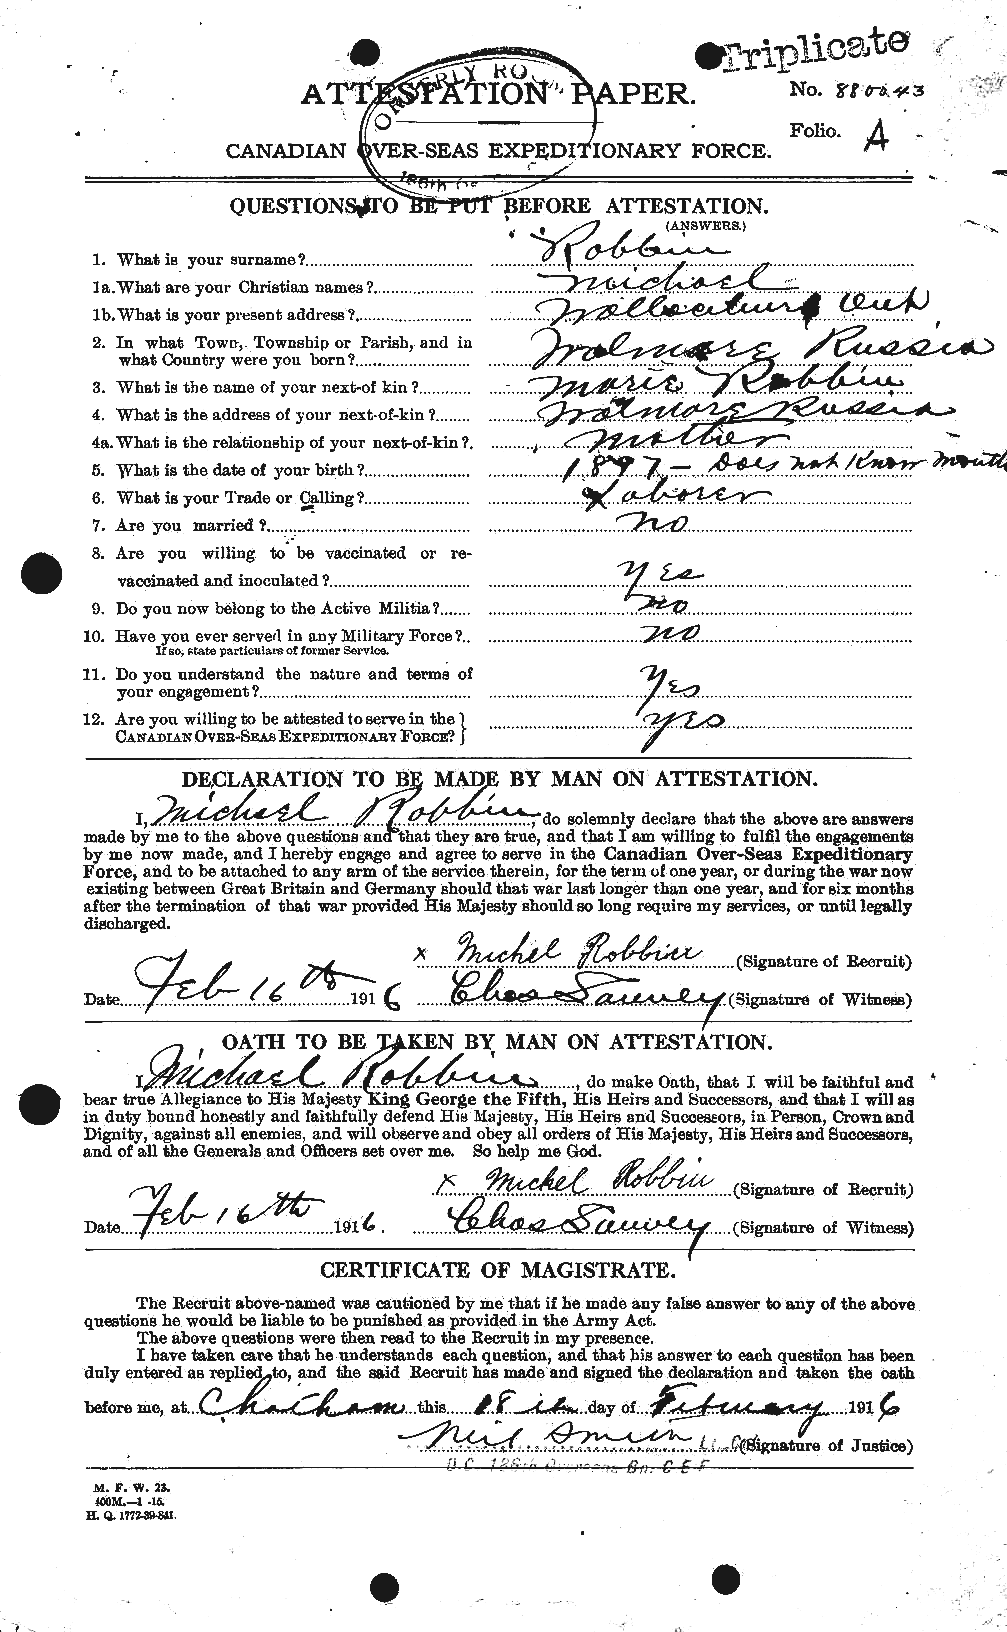 Triplicate
ATTESTATION PAPER.
No. 880043
Folio. A
CANADIAN OVER-SEAS EXPEDITIONARY FORCE.
QUESTIONS TO BE PUT BEFORE ATTESTATION.
(ANSWERS.)
1. What is your surname? Robbin
1a. What are your Christian names? Michael
1b. What is your present address? Ont
2. In what Town, Township or Parish, and in
what Country were you born? Wolmore Russia
3. What is the name of your next-of kin? Marie Robbin
4. What is the address of your next-of-kin? Wolmore Russia
4a. What is the relationship of your next-of-kin? Mother
5. What is the date of your birth? 1897 - Does not Know month
6. What is your Trade or Calling? Laborer
7. Are you married? No
8. Are you willing to be vaccinated or re-
vaccinated and inoculated? Yes
9. Do you now belong to the Active Militia? No
10. Have you ever served in any Military Force? No
If so, state particulars of former Service.
11. Do you understand the nature and terms of
your engagement? Yes
12. Are you willing to be attested to serve in the
CANADIAN OVER-SEAS EXPEDITIONARY FORCE? Yes
DECLARATION TO BE MADE BY MAN ON ATTESTATION.
I, Michael Robbin, do solemnly declare that the above are answers
made by me to the above questions and that they are true, and that I am willing to fulfil the engagements
by me now made, and I hereby engage and agree to serve in the Canadian Over-Seas Expeditionary
Force, and to be attached to any arm of the service therein, for the term of one year, or during the war now
existing between Great Britain and Germany should that war last longer than one year, and for six months
after the termination of that war provided His Majesty should so long require my services, or until legally
discharged.
x Michel Robbin (Signature of Recruit)
Date Feb 16th 1916 Chas Sauvey (Signature of Witness)
OATH TO BE TAKEN BY MAN ON ATTESTATION.
I, Michael Robbin, do make Oath, that I will be faithful and
bear true Allegiance to His Majesty King George the Fifth, His Heirs and Successors, and that I will as
in duty bound honestly and faithfully defend His Majesty, His Heirs and Successors, in Person, Crown and
Dignity, against all enemies, and will observe and obey all orders of His Majesty, His Heirs and Successors,
and of all the Generals and Officers set over me. So help me God.
x Michel Robbin (Signature of Recruit)
Date Feb 16th 1916. Chas Sauvey (Signature of Witness)
CERTIFICATE OF MAGISTRATE.
The Recruit above-named was cautioned by me that if he made any false answer to any of the above
questions he would be liable to be punished as provided in the Army Act.
The above questions were then read to the Recruit in my presence.
I have taken care that he understands each question, and that his answer to each question has been
duly entered as replied to, and the said Recruit has made and signed the declaration and taken the oath
before me, at Chatham this 18th day of February 1916
Neil Smith Lt. Col (Signature of Justice)
O.C. 186th Overseas Bn. C E F
M. F. W. 23.
400M.—1 -15.
H. Q. 1772-39-841.